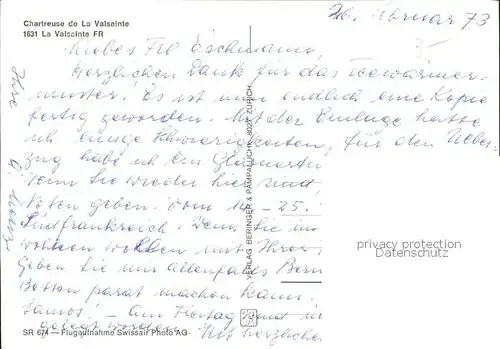 Chartreuse de La Valsainte
1631 La Valsainte FR
26. Februar 73
Liebes Frl Eschmann,
Herzlichen Dank für das Teewärmer-
muster! Es ist nun endlich eine Kopie
fertig geworden. Mit der Einlage hatte
ich einige Schwierigkeiten, für den Ueber-
zug habe ich
wenn Sie wieder hier sind,
geben. Vom 14. - 25.
Südfrankreich. Wenn Sie in
wollen mit Ihrer
geben Sie mir allenfalls Bern
parat machen kann,
Am Freitag sind
gelegt worden. Mit herzlichen
Ihre
VERLAG BERINGER & PAMPALUCHI, 8027 ZÜRICH
privacy protection
Datenschutz
SR 674 — Flugaufnahme Swissair Photo AG